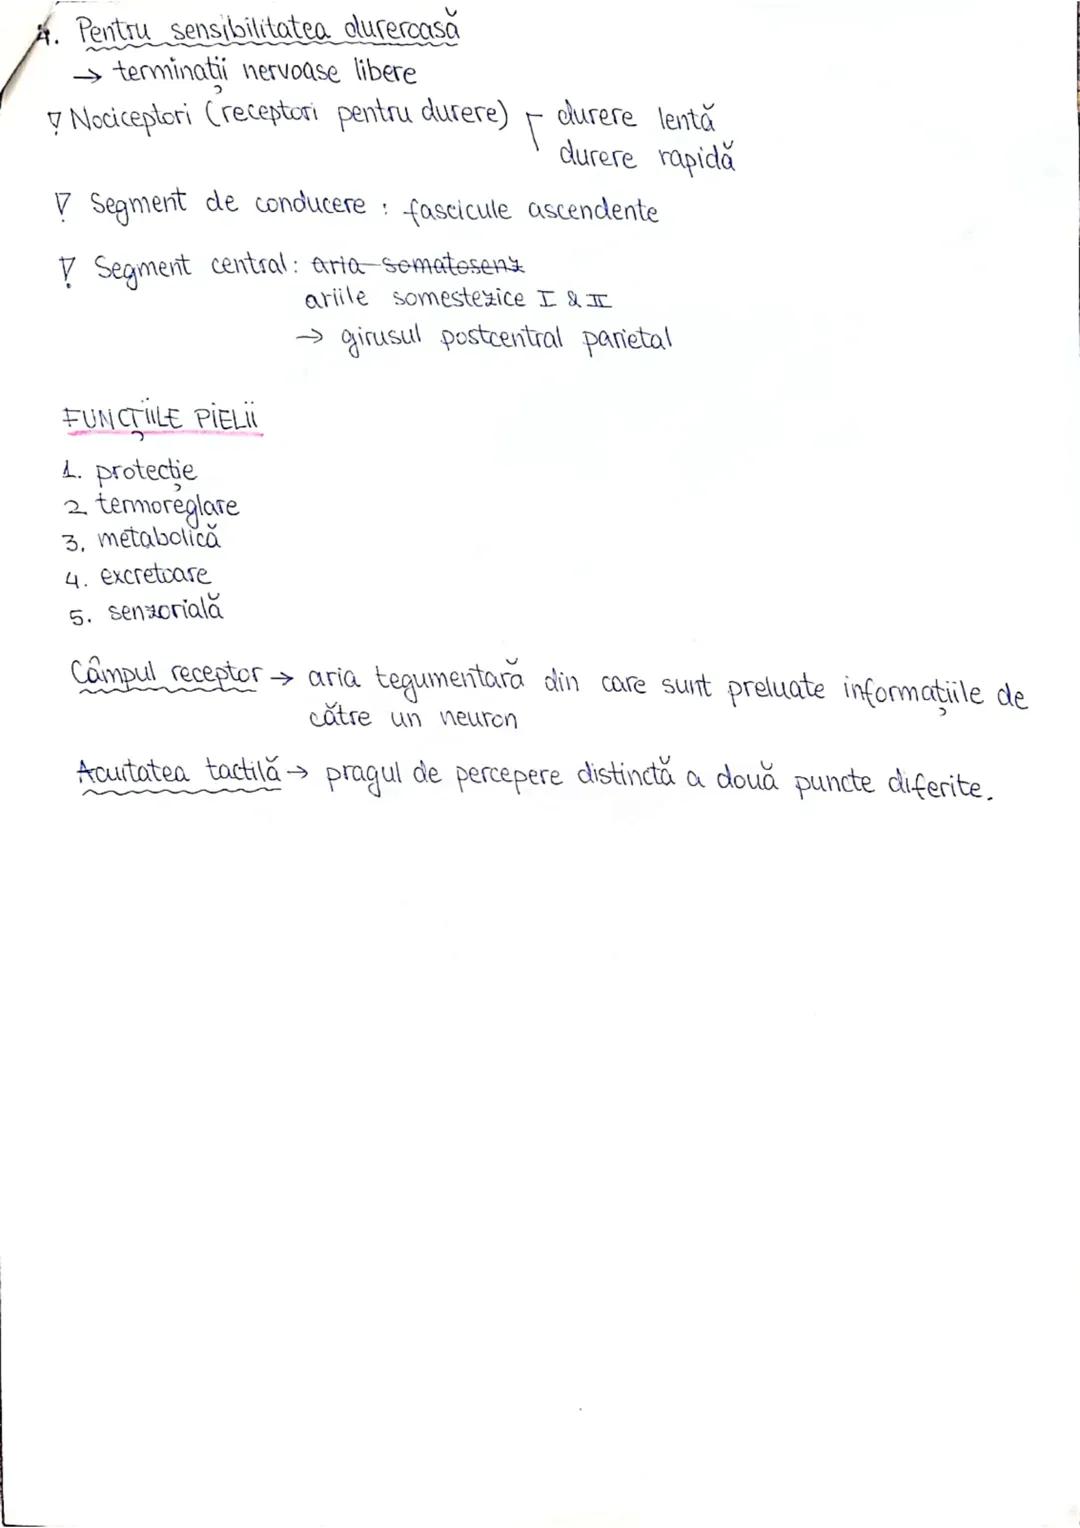 4. Pentru sensibilitatea dureroasă
→ terminații nervoase libere
∇ Nociceptori (receptori pentru durere) durere lentă
durere rapidă
∇ Segment de conducere : fascicule ascendente
∇ Segment central: aria somatosenz
ariile somestezice I & II
→ girusul postcentral parietal
FUNCȚIILE PIELII
1. protecție
2 termoreglare
3. metabolică
4. excretoare
5. senzorială
Câmpul receptor → aria tegumentară din care sunt preluate informațiile de
către un neuron
Acuitatea tactilă → pragul de percepere distinctă a două puncte diferite.